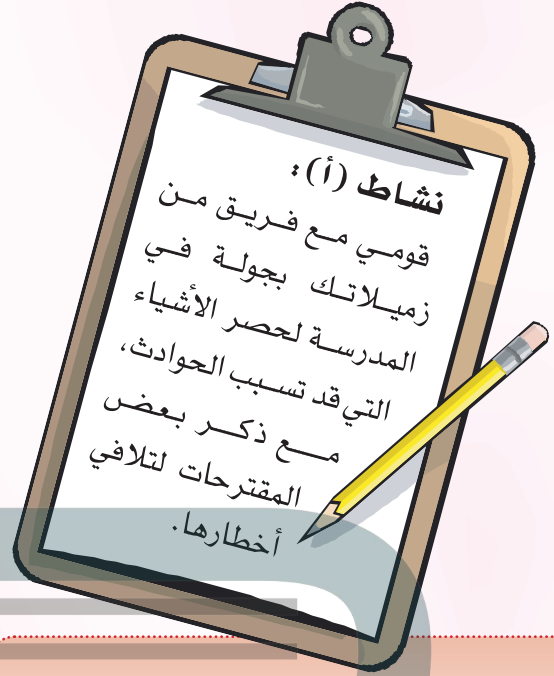 نشاط (أ):
قومي مع فريق من
زميلاتك بجولة في
المدرسة لحصر الأشياء
التي قد تسبب الحوادث،
مع ذكر بعض
المقترحات لتلافي
أخطارها.